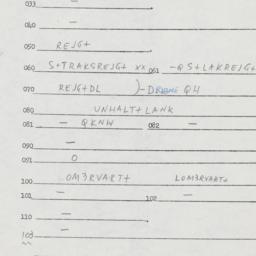 033 —
040 —
050 REJG+
060 S+TRAKSREJG+ xx 061 -QS+LAKREJG+
070 REJG+DL )- QH
080 UNHALT+LANK
081 — QKNW 082 —
090 —
091 O
100 OM3RVART+ LOM3RVART+
101 — 102 —
110 —
103 —